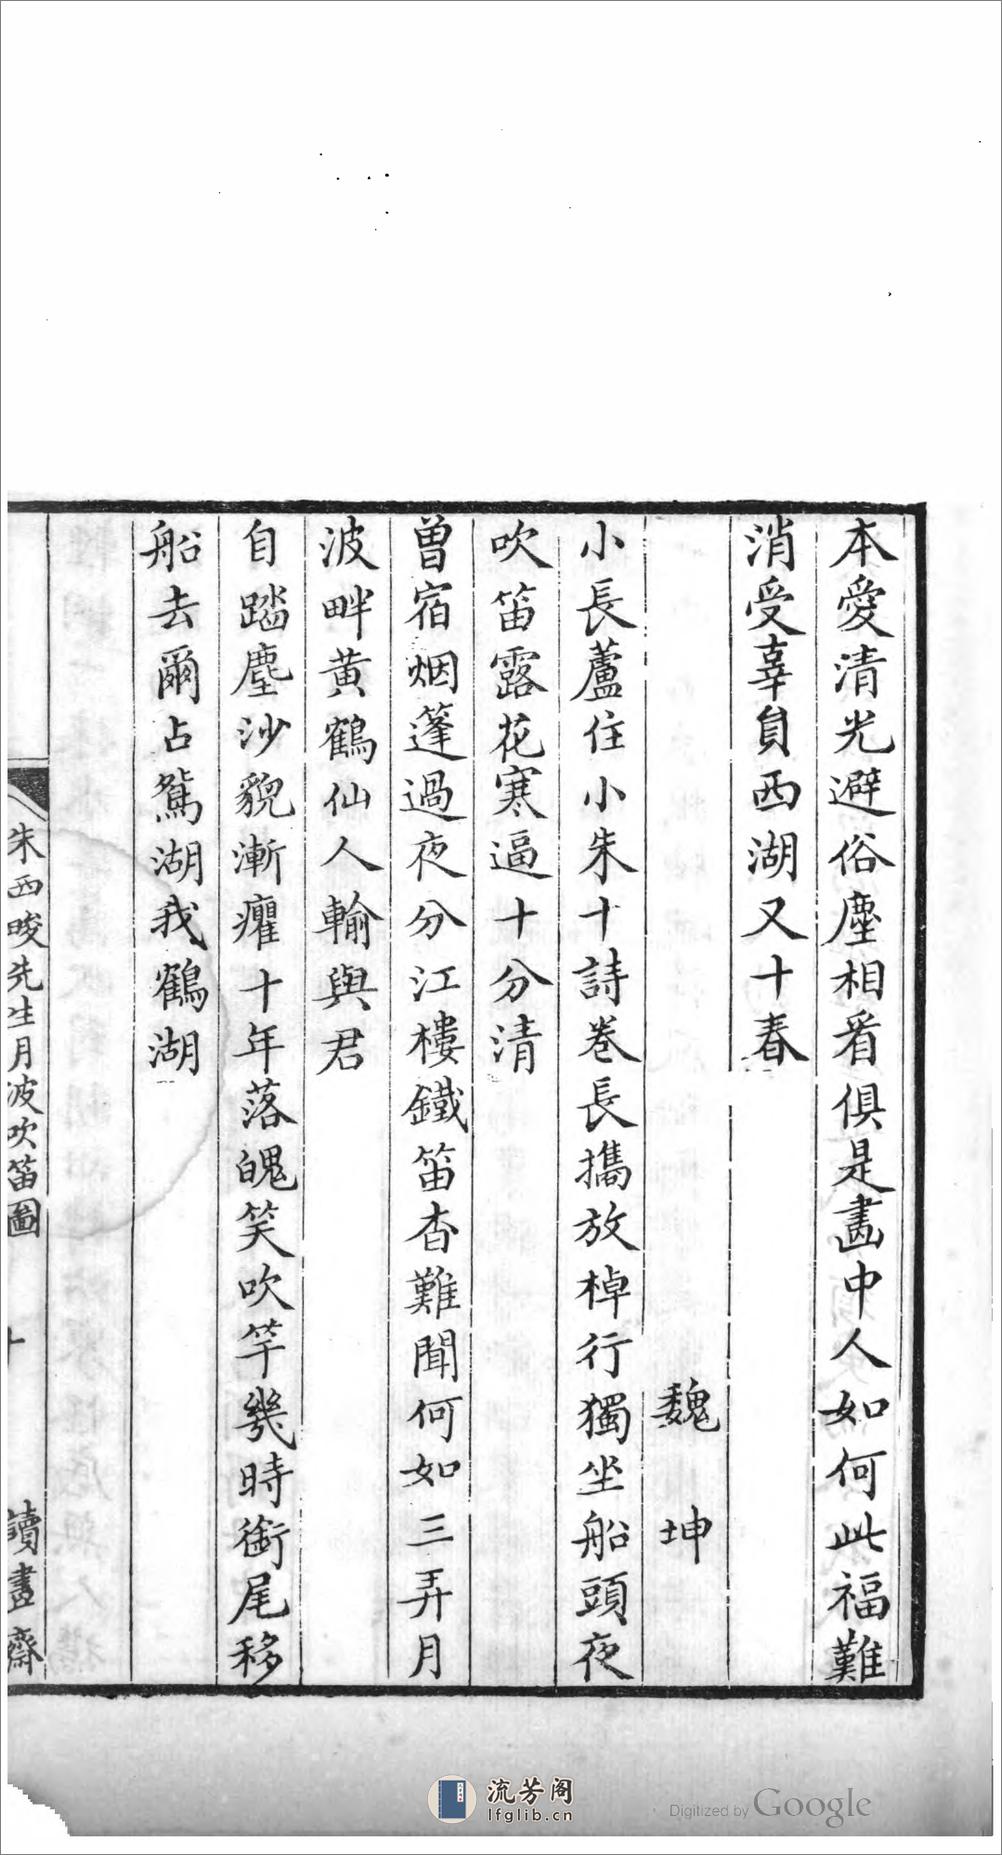 本愛清光避俗塵相看俱是畫中人如何此福難
消受辜負西湖又十春
魏坤
小長蘆住小朱十詩卷長攜放棹行獨坐船頭夜
吹笛露花寒逼十分清
曾宿烟篷過夜分江樓鐵笛杳難聞何如三弄月
波畔黃鶴仙人輸與君
自踏塵沙貌漸癯十年落魄笑吹竽幾時銜尾移
船去爾占鴛湖我鶴湖
朱西畯先生月波吹笛圖
十
讀畫齋
流芳阁
lfglib.cn
Digitized by Google